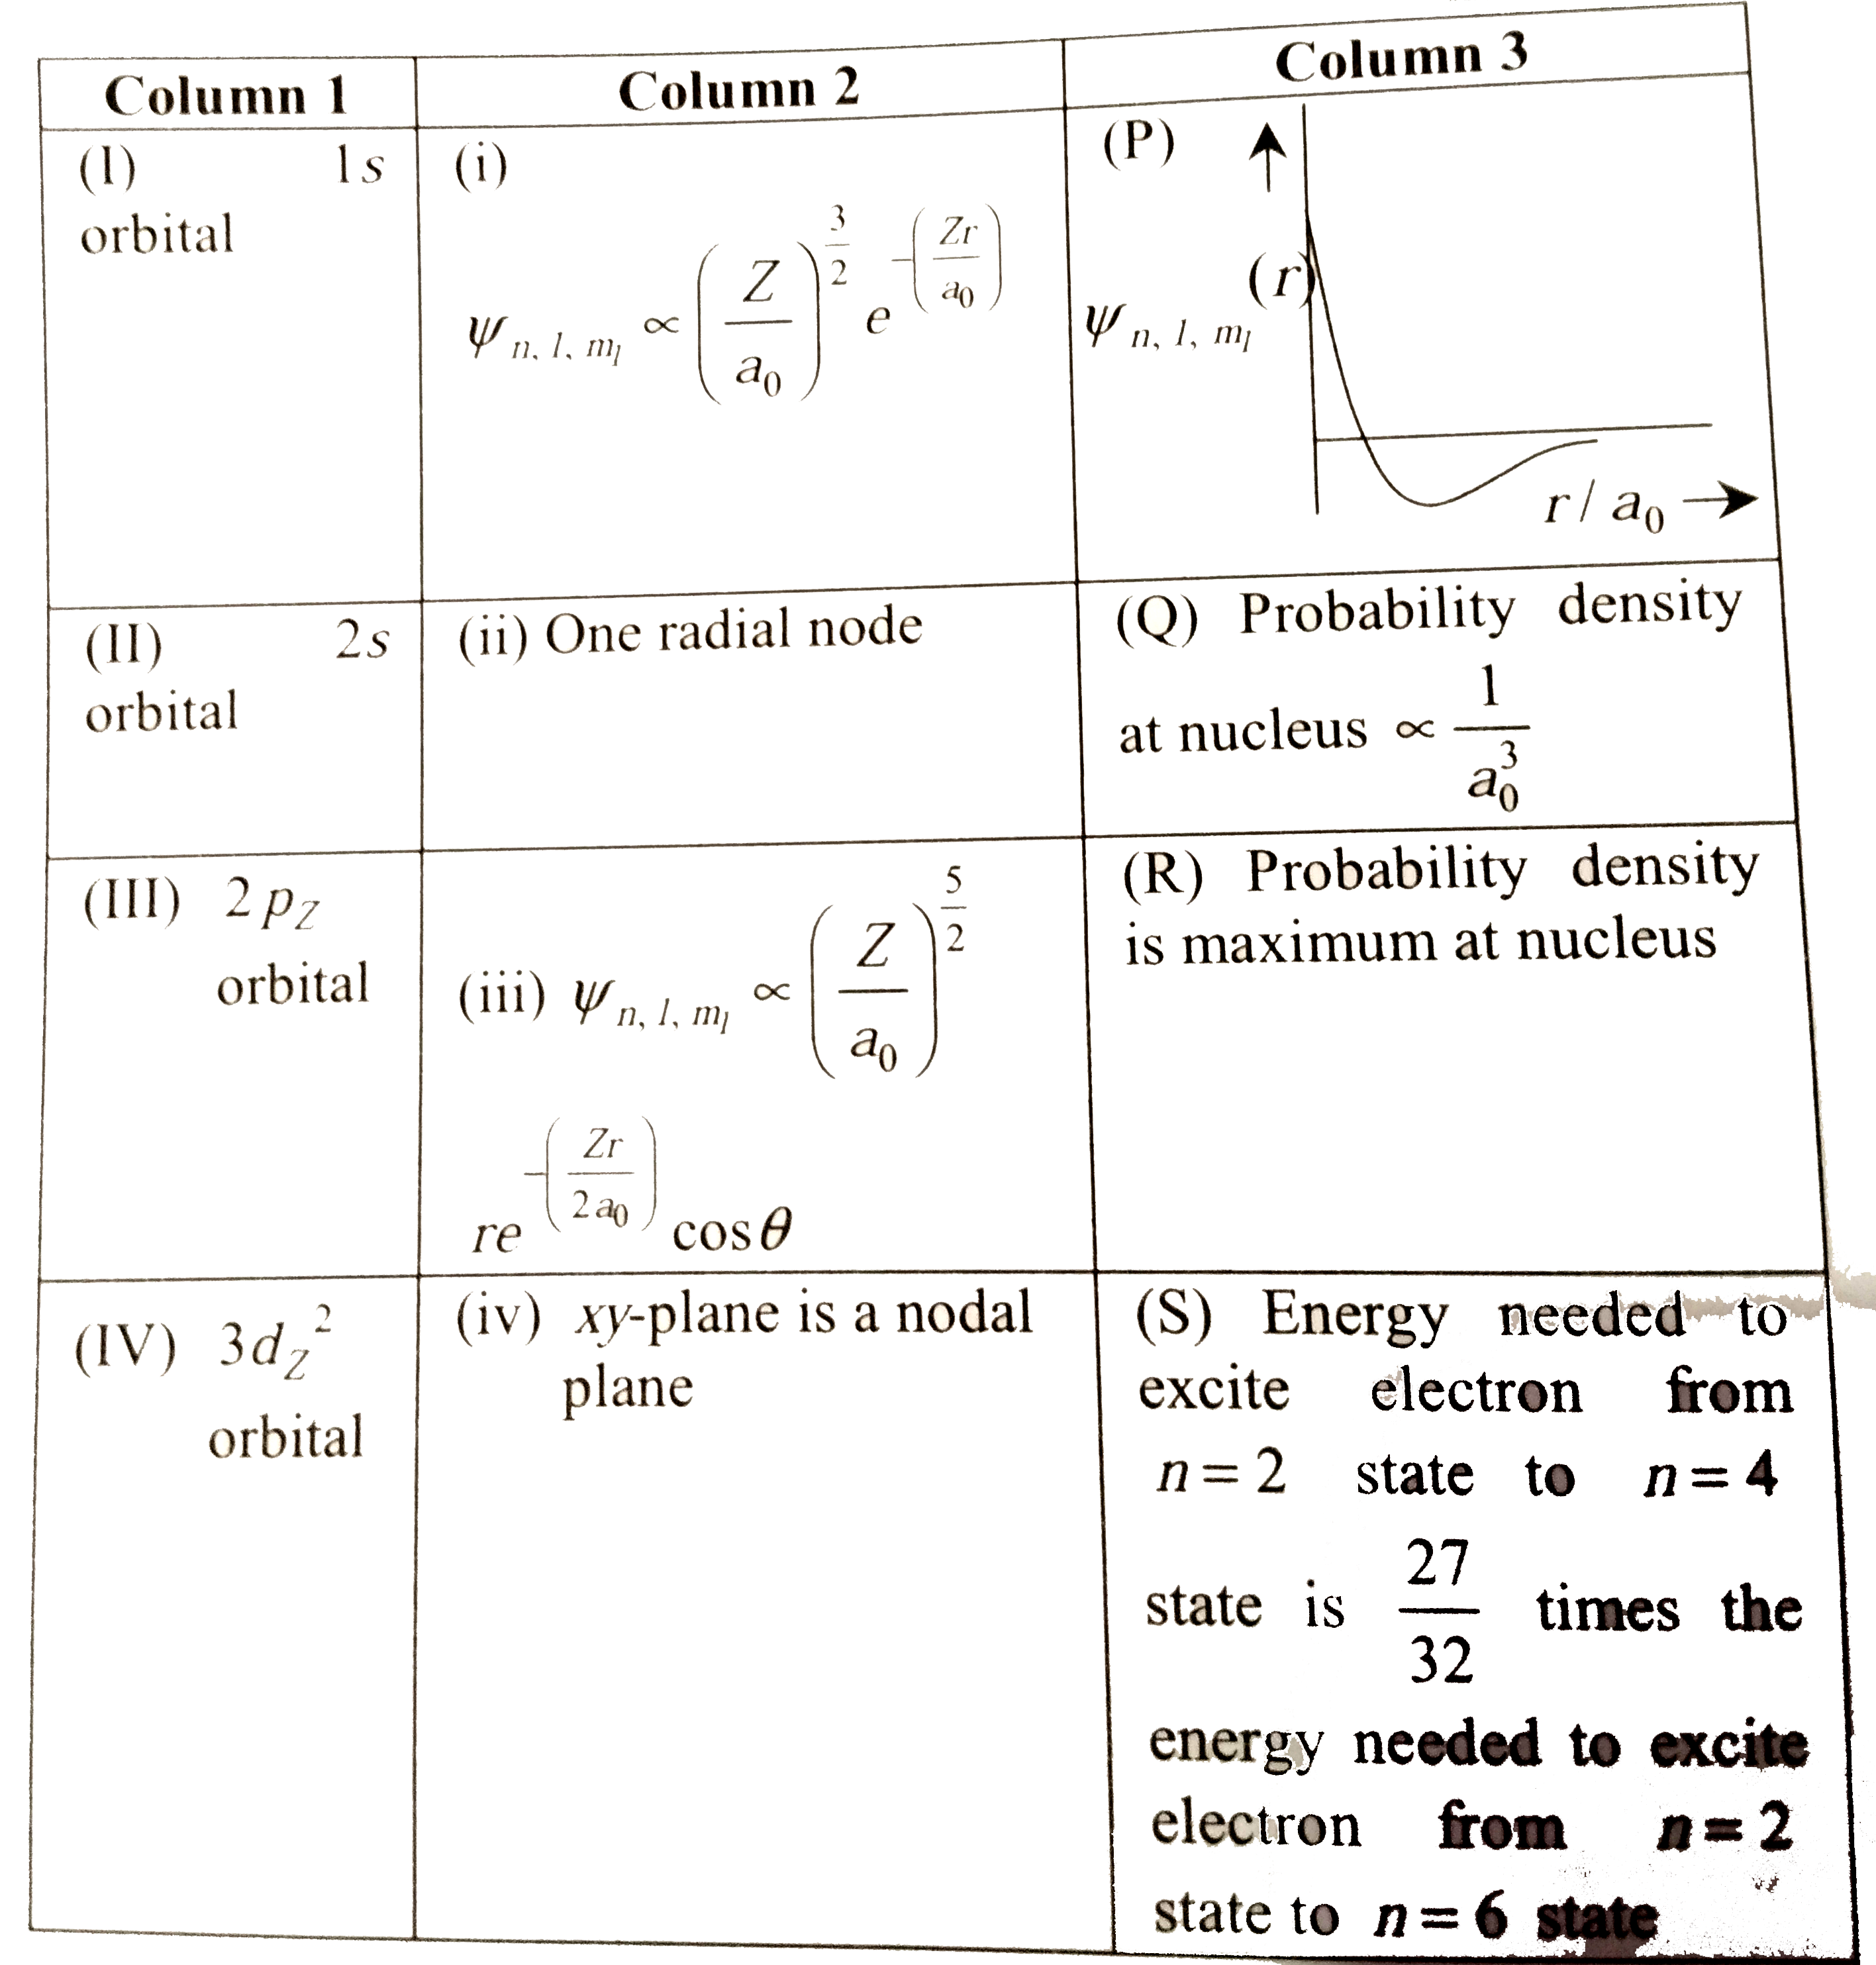 Column 1 Column 2 Column 3
(I) 1s
orbital
(i)
ψ n, l, m_l ∝ (Z/a₀)^(3/2) e^−(Zr/a₀)
(P)
ψ n, l, m_l (r)
r / a₀ →
(II) 2s
orbital
(ii) One radial node
(Q) Probability density
at nucleus ∝ 1/a₀³
(III) 2p_Z
orbital
(iii) ψ n, l, m_l ∝ (Z/a₀)^(5/2)
re^−(Zr/2a₀) cosθ
(R) Probability density
is maximum at nucleus
(IV) 3d_Z²
orbital
(iv) xy-plane is a nodal
plane
(S) Energy needed to
excite electron from
n = 2 state to n = 4
state is 27/32 times the
energy needed to excite
electron from n = 2
state to n = 6 state